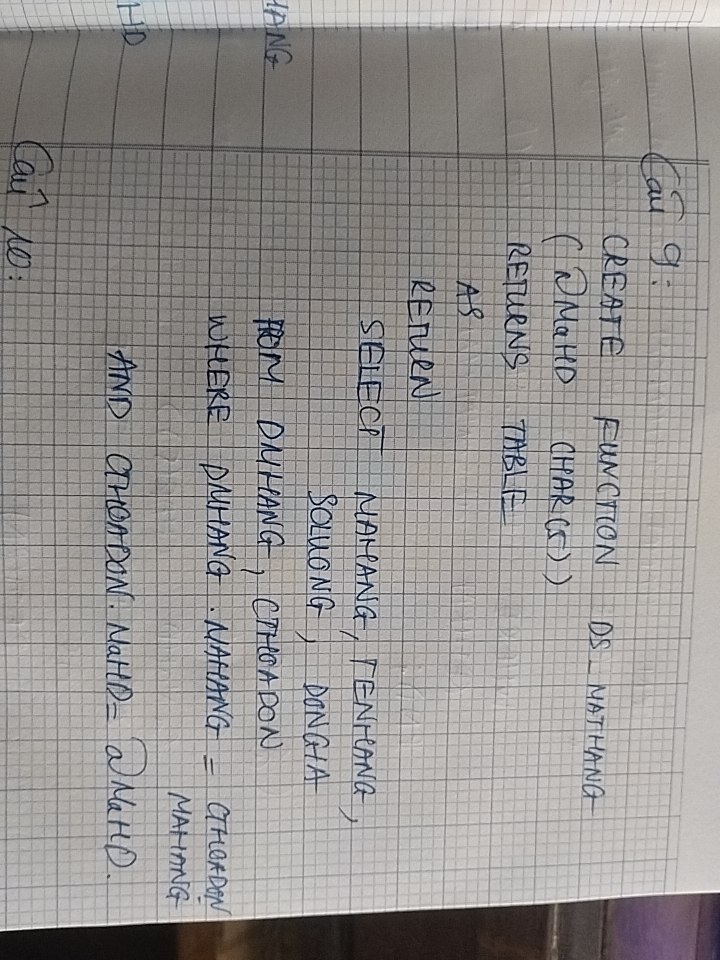 Câu 9:
CREATE FUNCTION DS_MATHANG
(@MaHD CHAR(5))
RETURNS TABLE
AS
RETURN
SELECT MAHANG, TENHANG,
SOLUONG, DONGIA
FROM DMHANG, CTHOADON
WHERE DMHANG.MAHANG = CTHOADON
MAHANG
AND CTHOADON.MaHD = @MaHD.
Câu 10:
HANG
HD